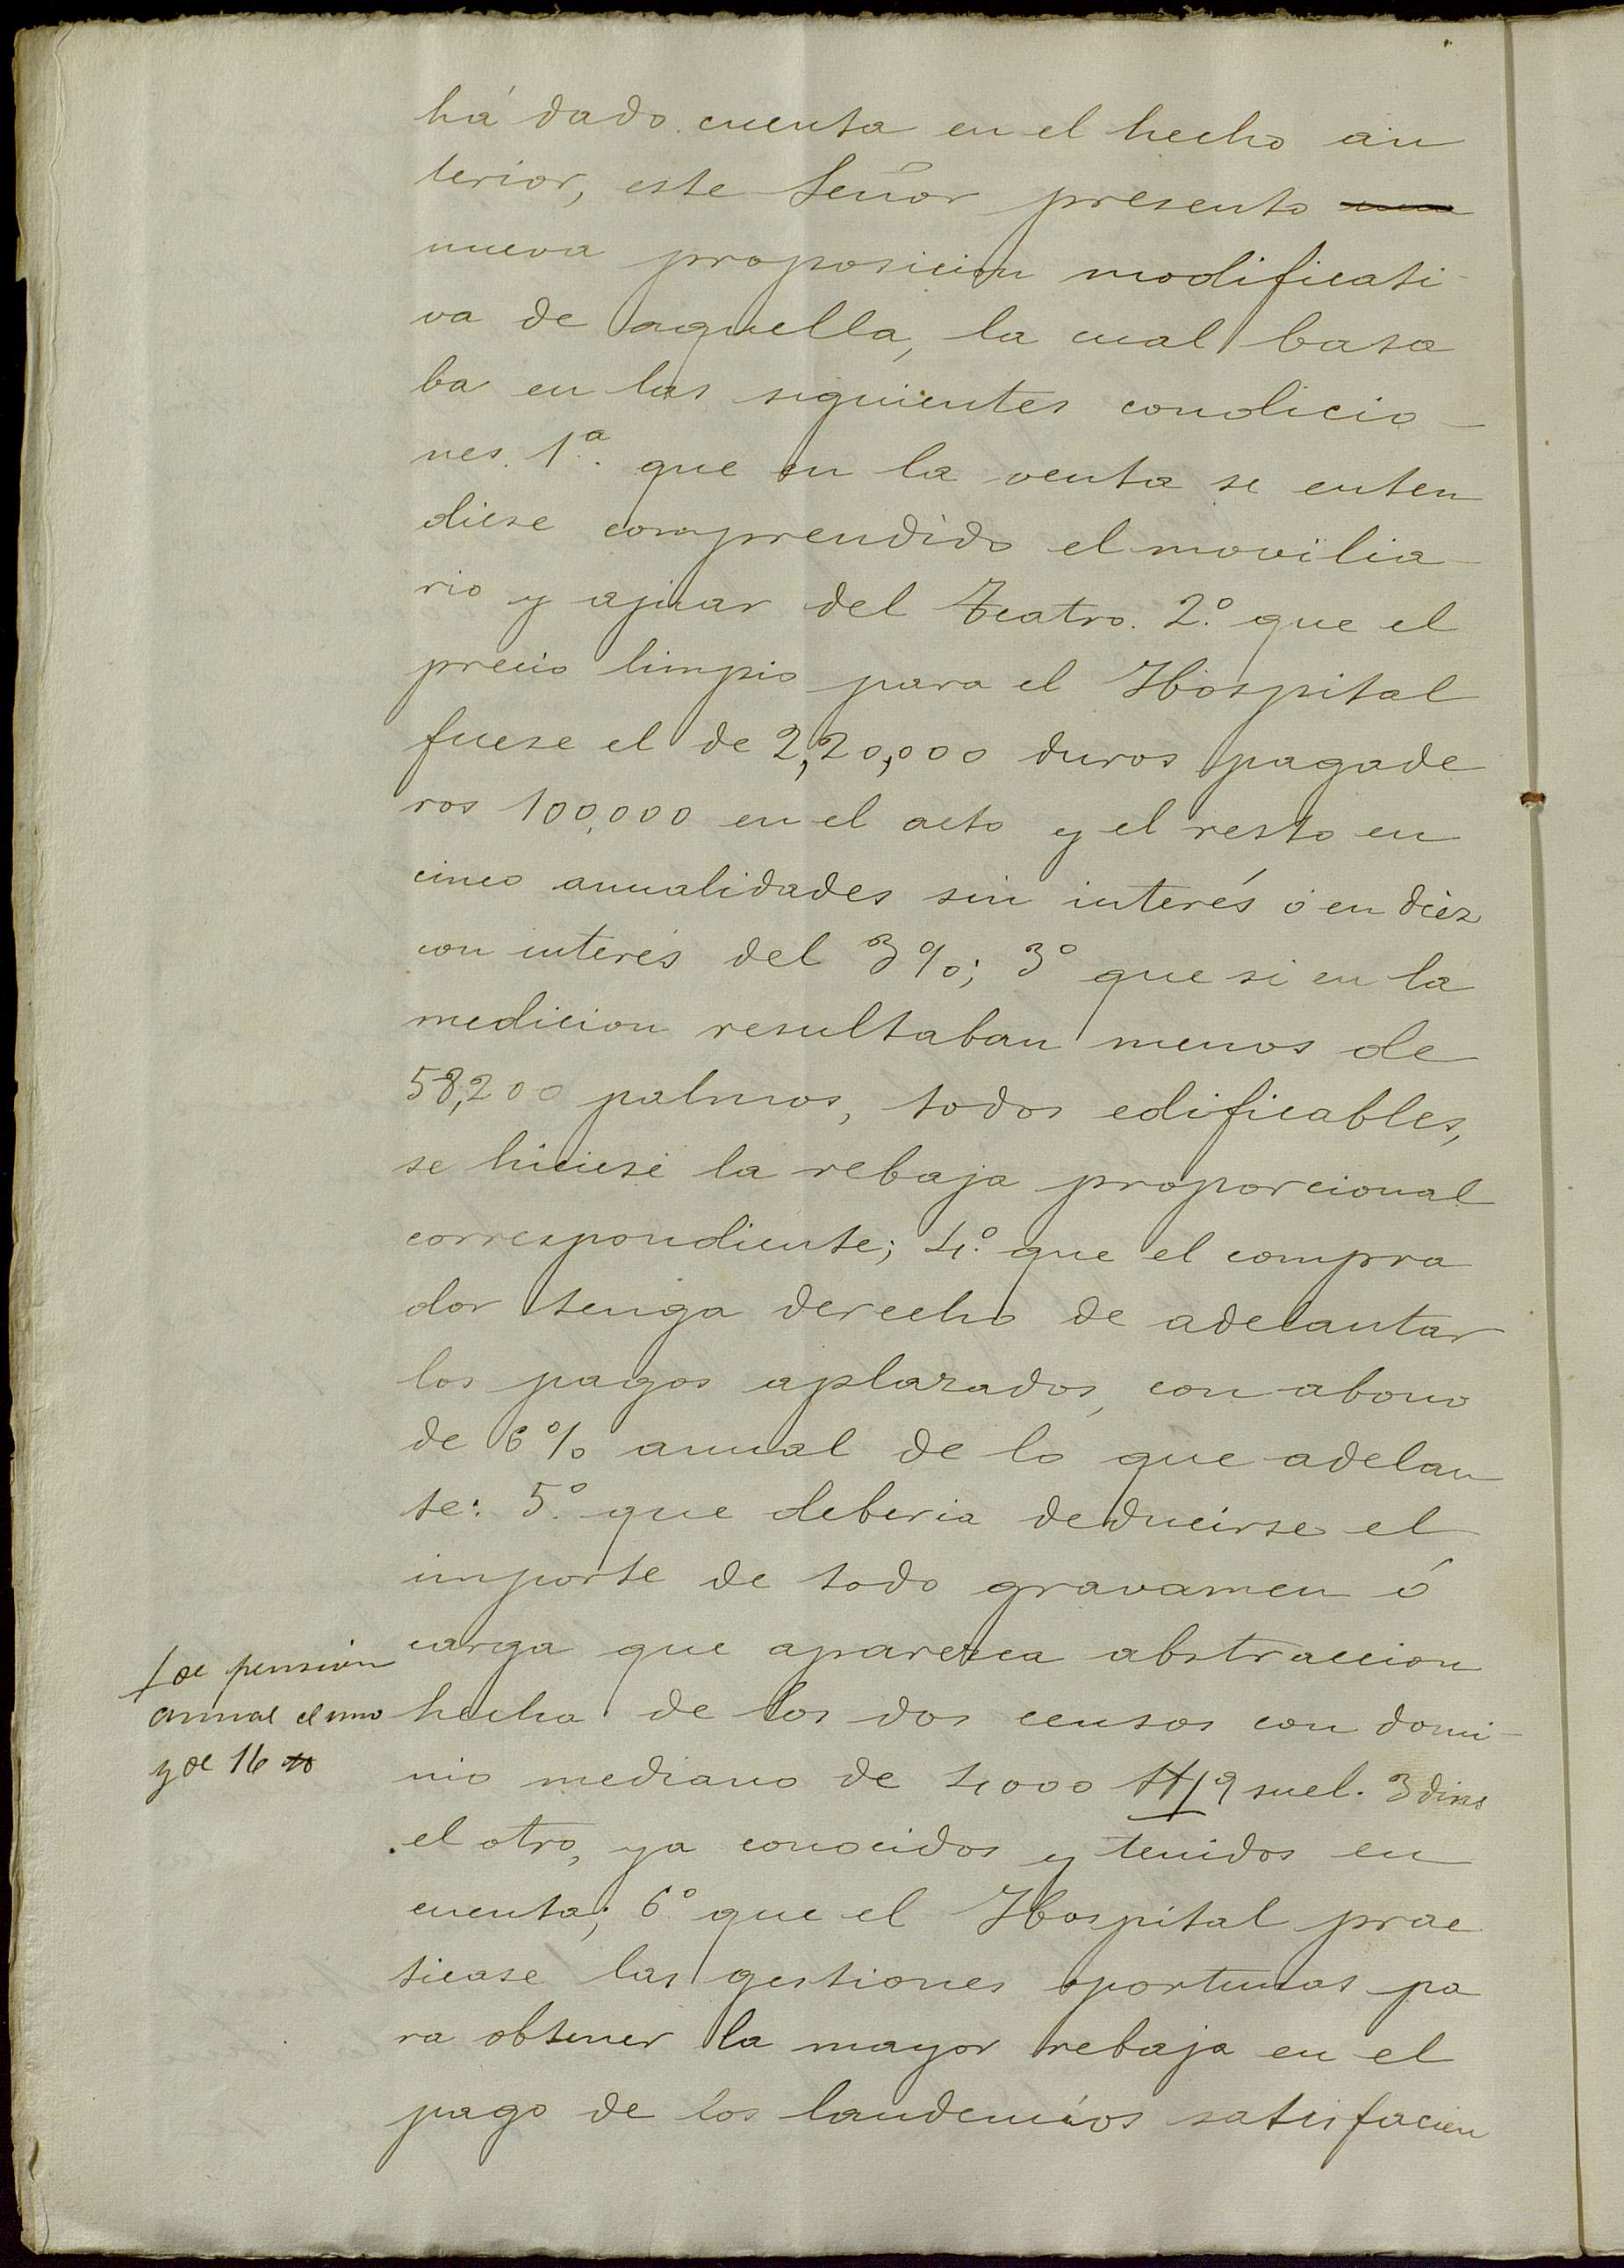 há dado cuenta en el hecho an
terior, este Señor presento una
nueva proposicion modificati-
va de aquella, la cual basa
ba en las siguientes condicio-
nes. 1ª. que en la venta se enten
diese comprendido el movilia-
rio y ajuar del Teatro. 2.º que el
precio limpio para el Hospital
fuese el de 2,20,000 duros pagade
ros 100,000 en el acto y el resto en
cinco anualidades sin interés ó en diez
con interés del 3%; 3º que si en la
medicion resultaban menos de
58,200 palmos, todos edificables,
se hiciese la rebaja proporcional
correspondiente; 4.º que el compra
dor tenga derecho de adelantar
los pagos aplazados, con abono
de 6% anual de lo que adelan
te: 5.º que deberia deducirse el
importe de todo gravamen ó
carga que aparezca abstraccion
hecha de los dos censos con domi-
nio mediano de 4,000 ₶ / 9 suel. 3 dins
el otro, ya conocidos y tenidos en
cuenta; 6.º que el Hospital prac
ticase las gestiones oportunas pa
ra obtener la mayor rebaja en el
pago de los laudemios satisfacien
/ de pension
annal el uno
y de 16 ₶